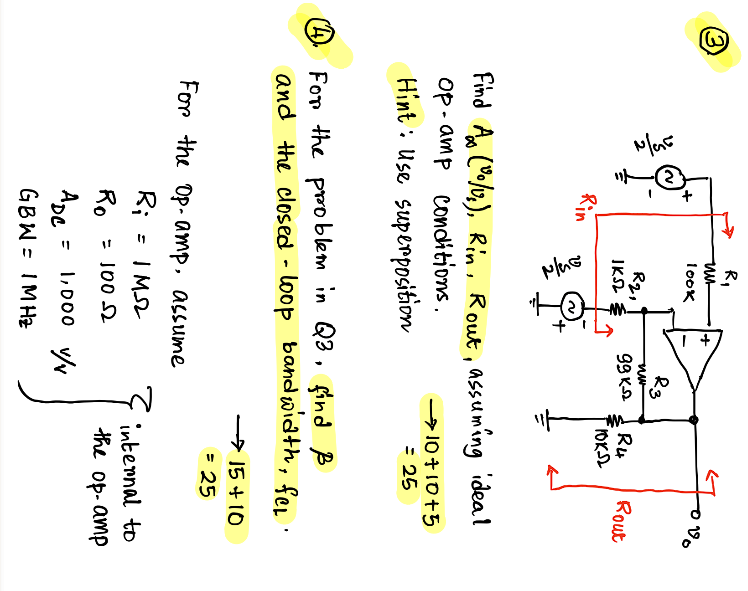 ③
υs/2
+
-
R1
100K
Rin
R2,
1KΩ
υs/2
-
+
+
-
R3
99KΩ
R4
10KΩ
υo
Rout
Find A∞ (υo/υs), Rin, Rout, assuming ideal
op-amp conditions.
→ 10+10+5
= 25
Hint: Use superposition
④ For the problem in Q3, find β
and the closed-loop bandwidth, fCL.
→ 15+10
= 25
For the op-amp, assume
Ri = 1MΩ
Ro = 100Ω
ADC = 1,000 V/V
GBW = 1MHz
internal to
the op-amp